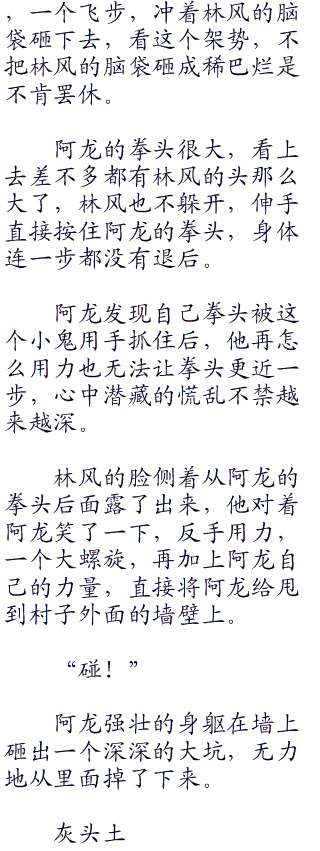 ，一个飞步，冲着林风的脑
袋砸下去，看这个架势，不
把林风的脑袋砸成稀巴烂是
不肯罢休。
阿龙的拳头很大，看上
去差不多都有林风的头那么
大了，林风也不躲开，伸手
直接按住阿龙的拳头，身体
连一步都没有退后。
阿龙发现自己拳头被这
个小鬼用手抓住后，他再怎
么用力也无法让拳头更近一
步，心中潜藏的慌乱不禁越
来越深。
林风的脸侧着从阿龙的
拳头后面露了出来，他对着
阿龙笑了一下，反手用力，
一个大螺旋，再加上阿龙自
己的力量，直接将阿龙给甩
到村子外面的墙壁上。
“碰！”
阿龙强壮的身躯在墙上
砸出一个深深的大坑，无力
地从里面掉了下来。
灰头土